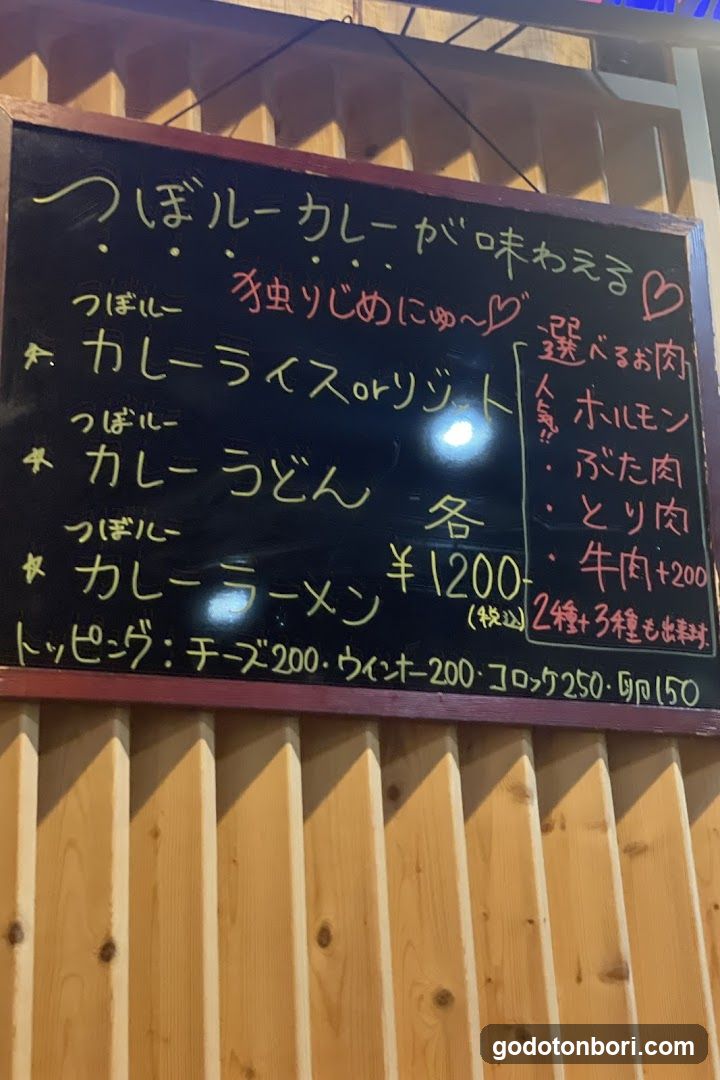 つぼルーカレーが味わえる♡
独りじめにゅ〜♡
つぼルー
★カレーライスorリゾット
つぼルー
★カレーうどん
つぼルー
★カレーラーメン
各
¥1200-
(税込)
選べるお肉
人気!!ホルモン
・ぶた肉
・とり肉
・牛肉+200
2種+3種も出来ます。
トッピング:チーズ200・ウインナー200・コロッケ250・卵150
godotonbori.com